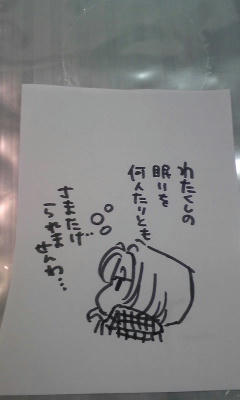 わたくしの
眠りを
何人たりとも
さまたげ
られませ
んわ…